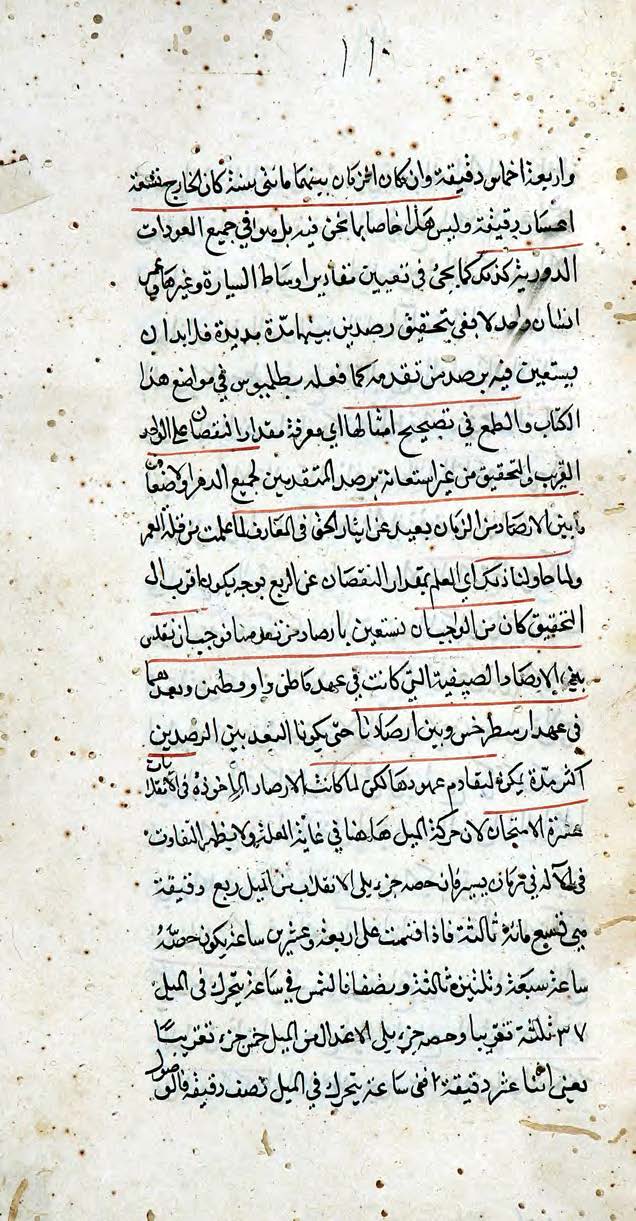 ١١٠
واربعة اخماس دقيقة وان كان الزمان بينهما مائتى سنة كان الخارج تسعة
اعشار دقيقة وليس هذا خاصا بما نحن فيه بل هو فى جميع العودات
الدورية كذلك كما يجئ فى تعيين مقادير اوساط السيارة وغيرها وعمر
انسان واحد لا يفى بتحقيق رصدين بينهما مدة مديدة فلا بد ان
يستعين فيه برصد من تقدمه كما فعله بطلميوس فى مواضع هذا
الكتاب والطمع فى تصحيح امثالها اى معرفة مقدار النقصان على الوجه
القرب والتحقيق من غير استعانة برصد المتقدمين لجميع الدهر ولاضعاف
ما بين الارصاد من الزمان بعيد عن ايثار الحق فى المعارف لما علمت من قلة العمر
ولما حاولنا ذلك اى العلم بمقدار النقصان عن الربع بوجه يكون اقرب الى
التحقيق كان من الواجب ان نستعين بارصاد من تقدمنا فوجب ان نقيس
الارصاد الصيفية التى كانت فى عهد ماطن واوقطمن وبعدهما
فى عهد ارسطرخس وبين ارصادنا حتى يكون البعد بين الرصدين
اكثر مدة يمكن لتقادم عهودها لكن لما كانت الارصاد الماخوذة فى الانقلابات
عسرة الامتحان لان حركة الميل هاهنا فى غاية القلة ولا يظهر التفاوت
فى الآلة فى زمان يسير فان حصة جزء يلى الانقلاب من الميل ربع دقيقة
هى تسع مائة ثالثة فاذا قسمت على اربعة وعشرين ساعة يكون حصة
ساعة سبعة وثلثين ثالثة ونصفا فالشمس فى ساعة يتحرك فى الميل
٣٧ ثالثة تقريبا وحصة جزء يلى الاعتدال من الميل خمس جزء تقريبا
يعنى اثنا عشر دقيقة ففى ساعة يتحرك فى الميل نصف دقيقة فالوصول